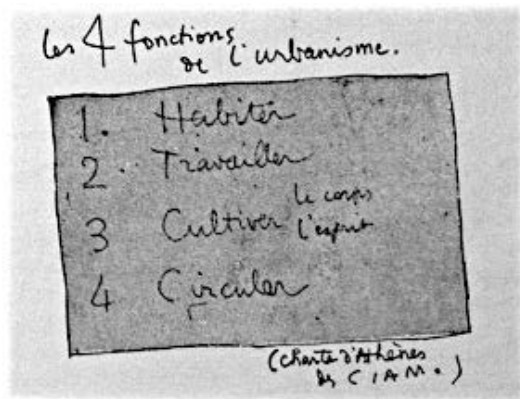 les 4 fonctions
de l'urbanisme.
1. Habiter
2. Travailler
3 Cultiver le corps
l'esprit
4 Circuler
(Charte d'Athènes
des CIAM.)